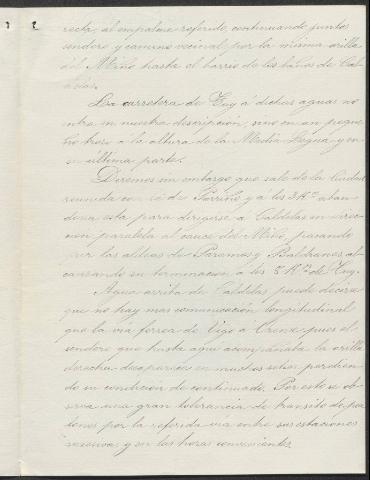 recta, al empalme referido, continuando juntos
sendero y camino vecinal por la misma orilla
del Miño hasta el barrio de los baños de Cal-
delas.
La carretera de Tuy á dichas aguas no
entra en nuestra descripción, sino en un peque-
ño trozo á la altura de la Media Legua y en
su última parte.
Diremos sin embargo que sale de la Ciudad
reunida con la de Porriño y á los 3 Km aban-
dona esta para dirigirse á Caldelas en direc-
ción paralela al cauce del Miño, pasando
por las aldeas de Paramos y Baldranes al-
canzando su terminación á los 8 Kms de Tuy.
Agua arriba de Caldelas, puede decirse
que no hay mas comunicación longitudinal
que la via ferrea de Vigo á Orense pues el
sendero que hasta aqui acompañaba la orilla
derecha, desaparece en muchos sitios perdien-
do su condición de continuado. Por esto se ob-
serva una gran tolerancia de transito de pea-
tones por la referida via entre sus estaciones
sucesivas y en las horas convenientes.